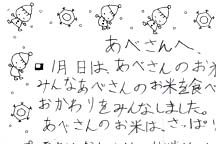 あべさんへ、
1月 日は、あべさんのお米
みんなあべさんのお米を食べ
おかわりをみんなしました。
あべさんのお米は、さっぱり